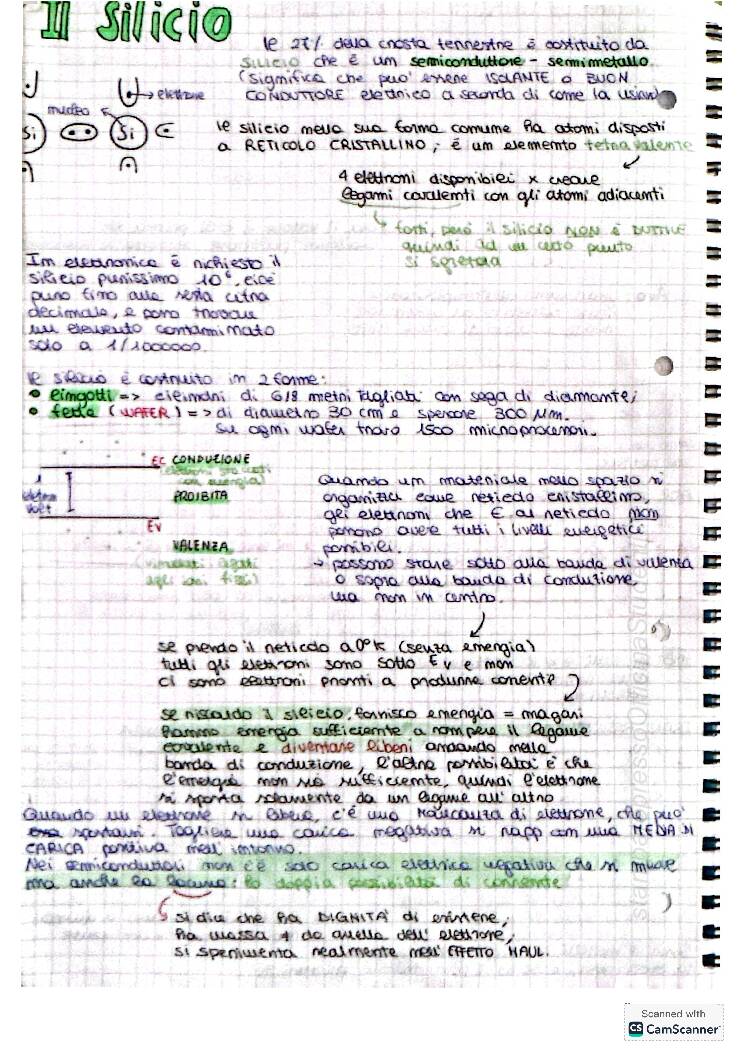 Il Silicio
Il 27% della crosta terrestre è costituito da
silicio che è un semiconduttore - semimetallo.
(significa che può essere ISOLANTE o BUON
CONDUTTORE elettrico a seconda di come la usiamo)
elettrone
nucleo
Si
Si
Il silicio nella sua forma comune ha atomi disposti
a RETICOLO CRISTALLINO, è un elemento tetravalente
4 elettroni disponibili x creare
legami covalenti con gli atomi adiacenti
forti, però il silicio NON è DUTTILE
quindi ad un certo punto
si sgretola
In elettronica è richiesto il
silicio purissimo 10⁶, cioè
puro fino alla sesta cifra
decimale, e posso trovare
un elemento contaminato
solo a 1/1000000.
Il silicio è costruito in 2 forme:
lingotti => cilindri di 6/8 metri tagliati con sega di diamante;
fetta (WAFER) => di diametro 30 cm e spessore 300 µm.
Su ogni wafer trovo 1500 microprocessori.
EC CONDUZIONE
(elettroni
con energia)
PROIBITA
1
elettron
volt
Ev
VALENZA
(
agli ioni fissi)
Quando un materiale nello spazio si
organizza come reticolo cristallino,
gli elettroni che € al reticolo non
possono avere tutti i livelli energetici
possibili.
→ possono stare sotto alla banda di valenza
o sopra alla banda di conduzione
ma non in centro.
se prendo il reticolo a 0°K (senza energia)
tutti gli elettroni sono sotto Ev e non
ci sono elettroni pronti a produrre corrente
se riscaldo il silicio, fornisco energia = magari
hanno energia sufficiente a rompere il legame
covalente e diventare liberi andando nella
banda di conduzione, l'altra possibilità è che
l'energia non sia sufficiente, quindi l'elettrone
si sposta solamente da un legame all'altro.
Quando un elettrone si libera, c'è una mancanza di elettrone, che può
spostarsi. Togliere una carica negativa si rapp con una
CARICA positiva nell'intorno.
Nei semiconduttori non c'è solo carica elettrica negativa che si muove
ma anche la lacuna: ho doppia possibilità di corrente
si dice che ha DIGNITÀ di esistere,
ha massa ≠ da quella dell'elettrone,
si sperimenta realmente nell'EFFETTO HAUL.
Scanned with
CS CamScanner